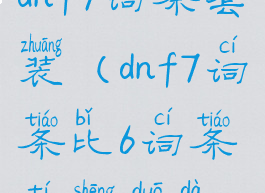 dnf7词条套
zhuāng cí
装（dnf7词
tiáo bǐ cí tiáo
条比6词条
shēng duō dà